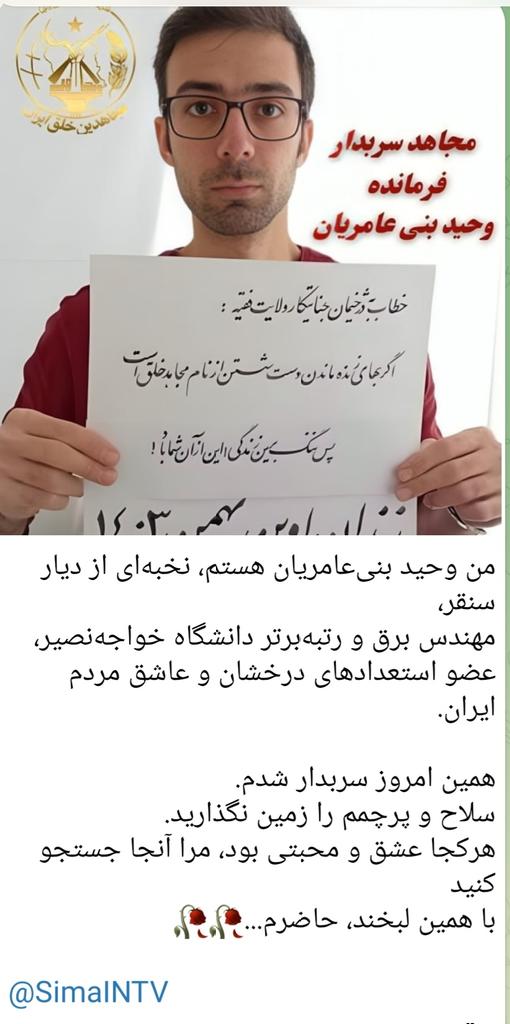 مجاهدین خلق ایران
مجاهد سربدار
فرمانده
وحید بنی عامریان
خطاب به دژخیمان جنایتکار ولایت فقیه :
اگر بهای زنده ماندن دست شستن از نام مجاهد خلق است
پس ننگ بر این زندگی، این از آن شما باد!
زندان اوین بهمن ۱۴۰۳
من وحید بنی‌عامریان هستم، نخبه‌ای از دیار
سنقر،
مهندس برق و رتبه‌برتر دانشگاه خواجه‌نصیر،
عضو استعدادهای درخشان و عاشق مردم
ایران.
همین امروز سربدار شدم.
سلاح و پرچمم را زمین نگذارید.
هرکجا عشق و محبتی بود، مرا آنجا جستجو
کنید
با همین لبخند، حاضرم...🥀🥀
@SimaINTV